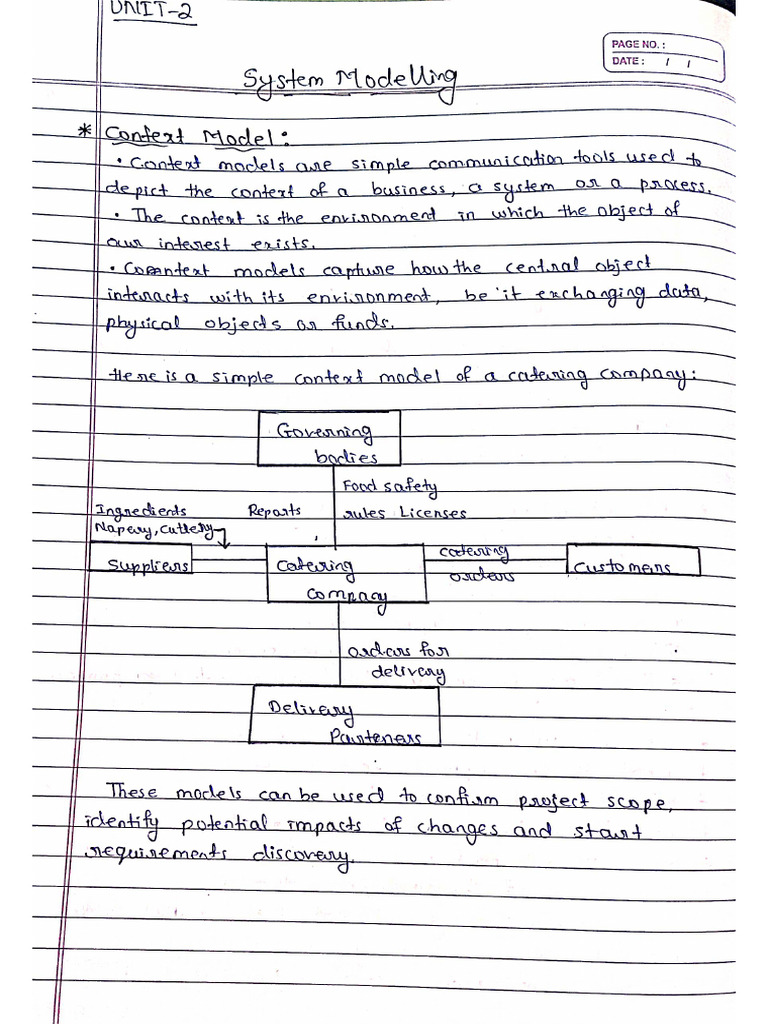 UNIT-2
PAGE NO. :
DATE : / /
System Modelling
* Context Model:
• Context models are simple communication tools used to
depict the context of a business, a system or a process.
• The context is the environment in which the object of
our interest exists.
• Context models capture how the central object
interacts with its environment, be it exchanging data,
physical objects or funds.
Here is a simple context model of a catering company:
Governing
bodies
Food safety
Ingredients Reports rules Licenses
Napery, Cutlery
Suppliers
Catering
company
catering
orders
Customers
orders for
delivery
Delivery
Parteners
These models can be used to confirm project scope,
identify potential impacts of changes and start
requirements discovery.